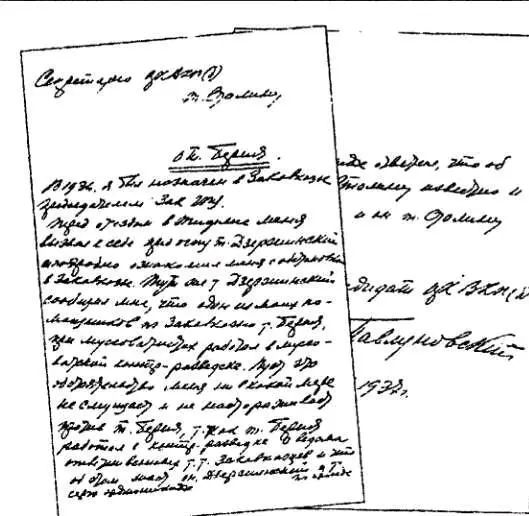 Секретарю ЦК ВКП(б)
т. Сталину
о т. Берия.
В 1926 г. я был назначен в Закавказье
председателем Зак ГПУ.
Перед отъездом в Тифлис меня
вызвал к себе пред. ОГПУ т. Дзержинский
и подробно ознакомил меня с обстановкой
в Закавказье. Тут же т. Дзержинский
сообщил мне, что один из моих по-
мощников по Закавказью т. Берия,
при мусаватистах работал в мусава-
тской контр-разведке. Пусть это
обстоятельство меня ни в какой мере
не смущает и не настораживает
против т. Берия, т. как т. Берия
работал в контр-разведке с ведома
ответственных т.т. Закавказцев и что
об этом знает он, Дзержинский и т.
Серго Орджоникидзе
что об
Сталину известно и
и он т. Сталину
ЦК ВКП(б)
Павлуновский
1937 г.